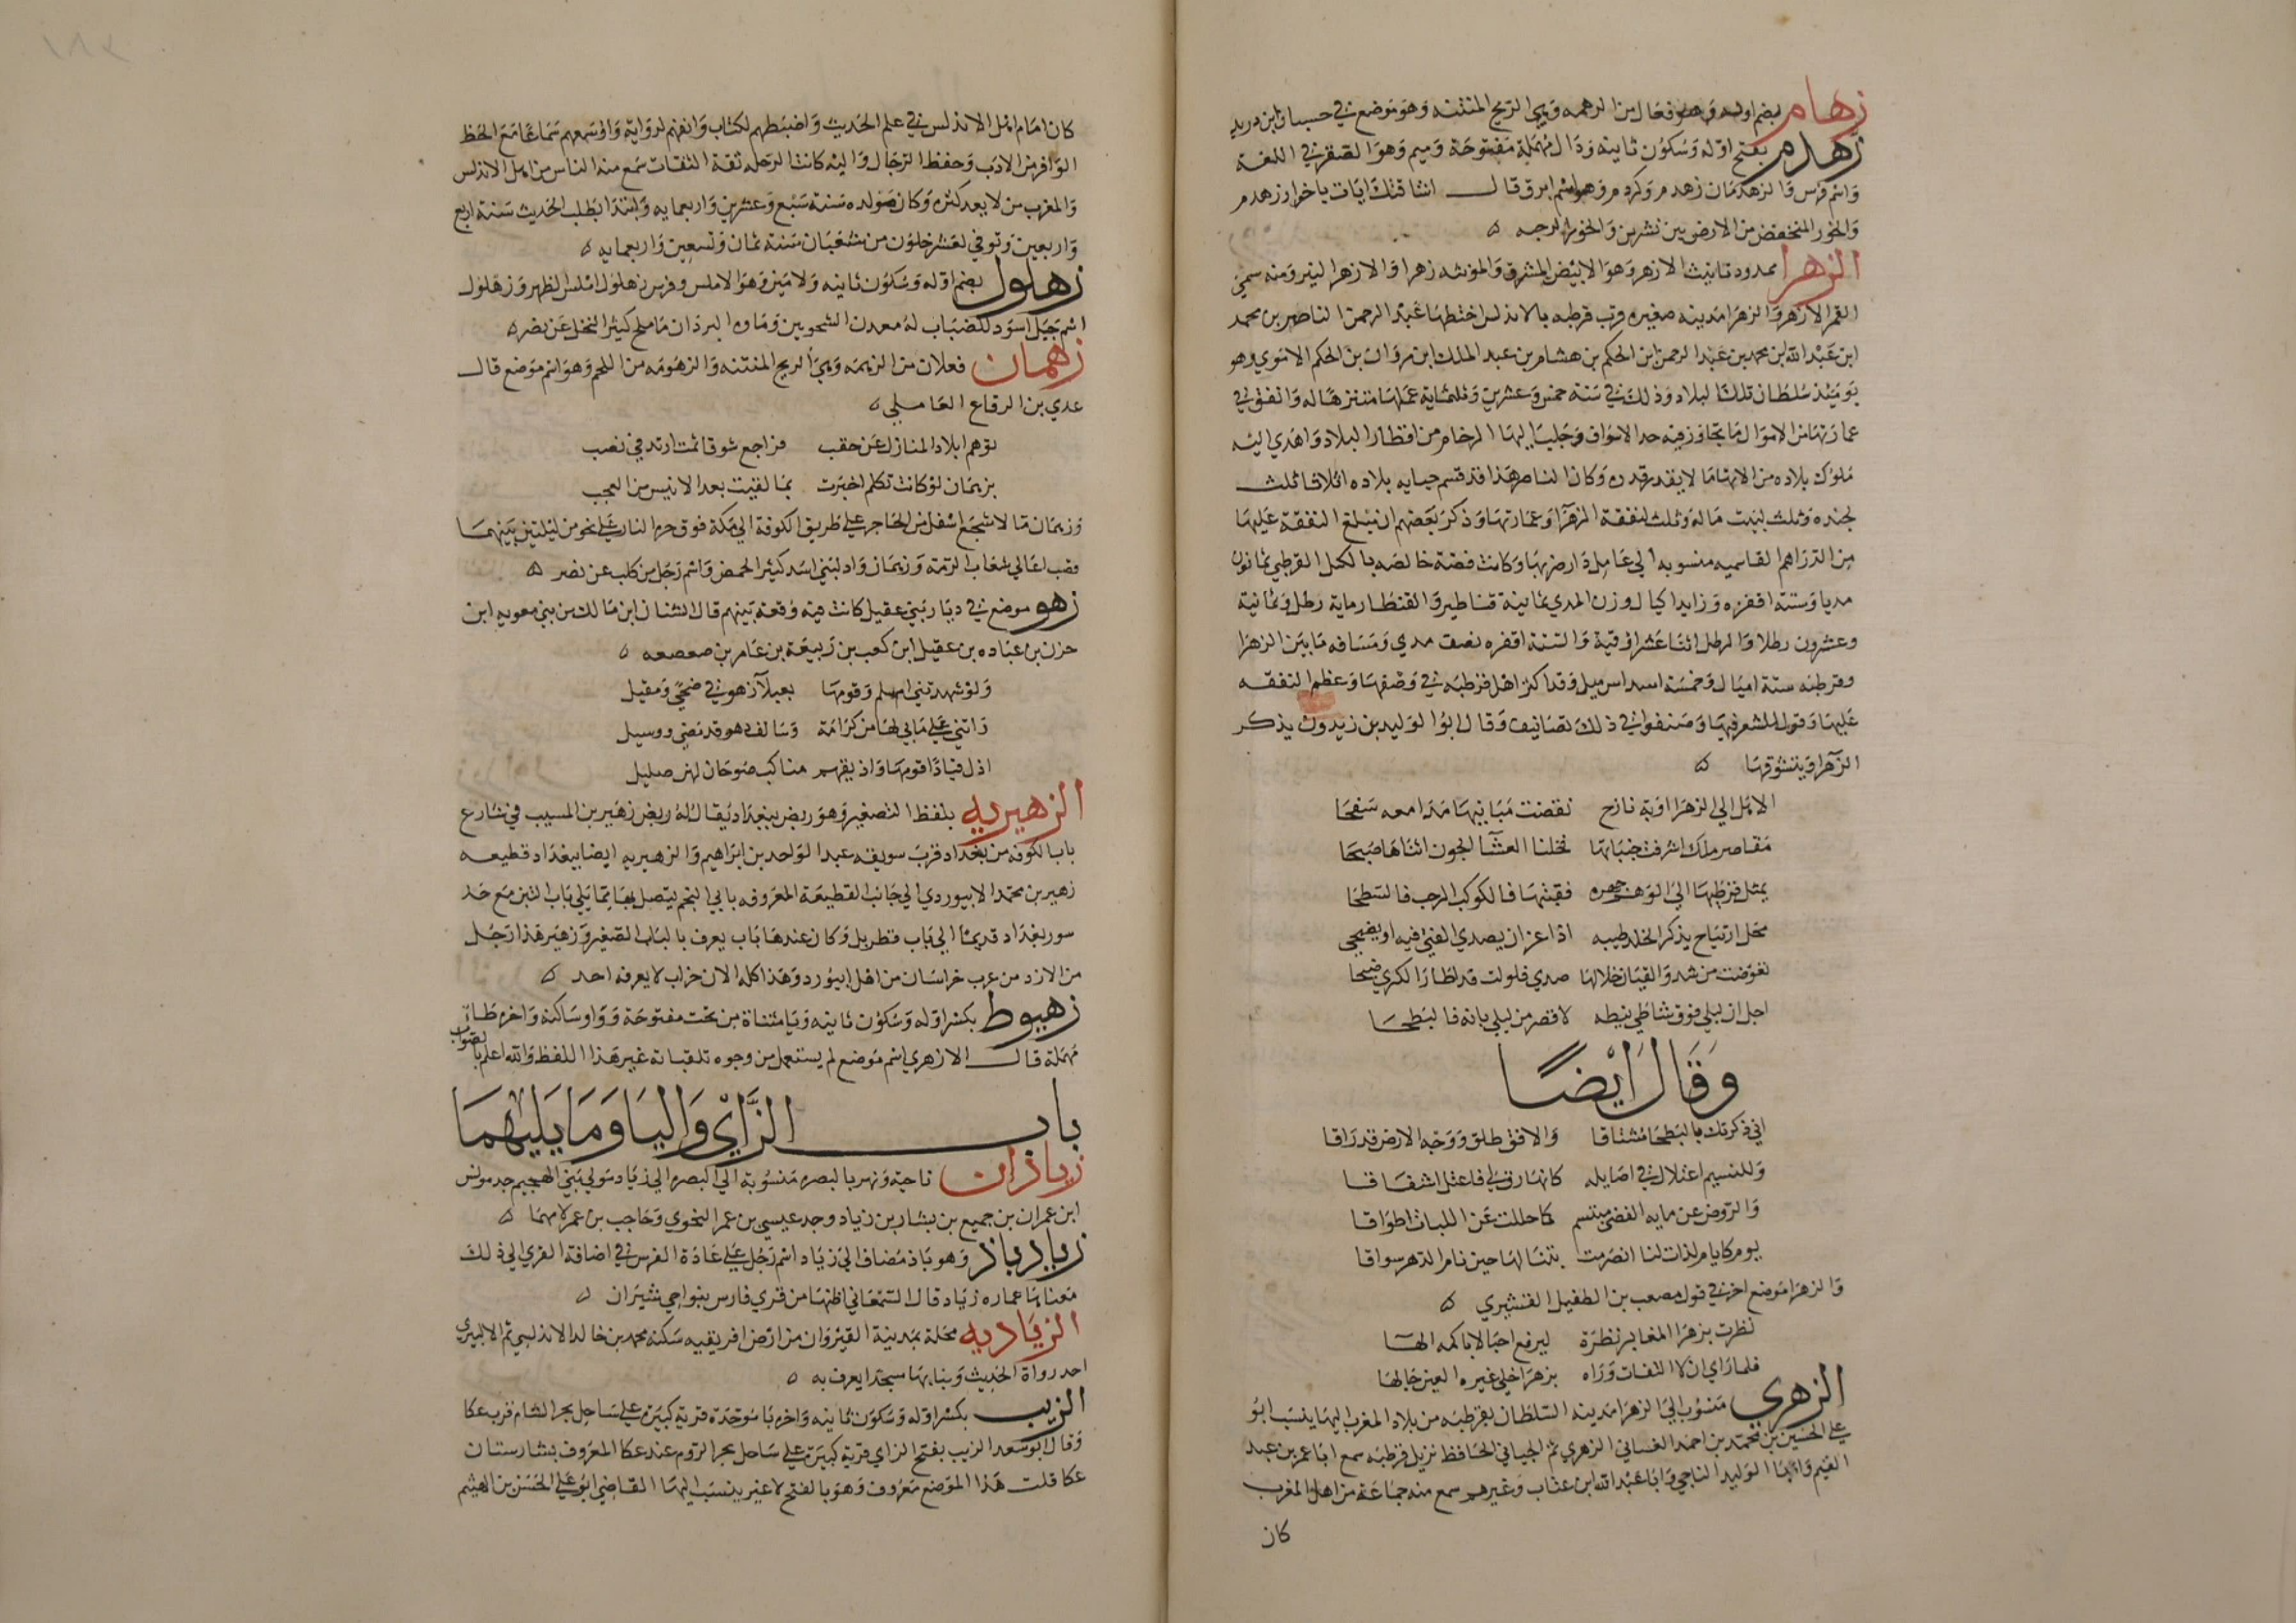 زهام بضم اوله وهو فعال من الزهمه وهي الريح المنتنه وهو موضع في حسبان ابن دريد
زهدم بفتح اوله وسكون ثانيه ودال مهملة مفتوحة وميم وهو الصقر في اللغة
واسم فرس والزهدمان زهدم وكردم وهو اسم ابرق قال اشاقتك ايات باخرار زهدم
والخور المنخفض من الارض بين نشزين والخور الرحبه ه
الزهرا ممدود تانيث الازهر وهو الابيض المشرق والمونثه زهرا والازهر النير ومنه سمي
القمر الازهر والزهرا مدينه صغيره قرب قرطبه بالاندلس اختطها عبد الرحمن الناصر بن محمد
ابن عبد الله بن محمد بن عبد الرحمن ابن الحكم بن هشام بن عبد الملك ابن مروان بن الحكم الاموي وهو
يوميئذ سلطان تلك البلاد وذلك في سنة خمس وعشرين وثلثماية عملها متنزها له وانفق في
عمارتها من الاموال ما تجاوز فيه حد الاسراف وجلب اليها الرخام من اقطار البلاد واهدي اليه
ملوك بلاده من الاتها ما لا يقدر قدره وكان الناصر هذا قد قسم جبايه بلاده اثلاثا ثلث
لجنده وثلث لبيت ماله وثلث لنفقة الزهرا وعمارتها وذكر بعضهم ان مبلغ النفقة عليها
من الدراهم القاسميه منسوبه الي عامل دار ضربها وكانت فضة خالصه بالكيل القرطبي ثمانون
مديا وستة اقفزه وزايد اكيال وزن المدي ثمانية قناطير والقنطار ماية رطل وثمانية
وعشرون رطلا والرطل اثنا عشر اوقية والستة اقفزه نصف مدي ومسافه ما بين الزهرا
وقرطبه ستة اميال وخمسة اسداس ميل وقد اكثر اهل قرطبه في وصفها وعظم النفقه
عليها وقول الشعر فيها وصنفوا في ذلك تصانيف وقال ابو الوليد بن زيدون يذكر
الزهرا ويتشوقها ه
الا هل الي الزهرا اوبة نازح تقضت مبانيها مدامعه سفحا
مقاصر ملك اشرقت جنباتها فخلنا العشآ الجون اثناها صبحا
يمثل قرطيها الي الوهم جهره فقبتها فالكوكب الرحب فالسطحا
محل ارتياح يذكر الخلد طيبه اذا عز ان يصدي الفتي فيه او يضحي
تعوضت من شدو القيان خلالها صدي فلوات قد اطار الكري ضبحا
اجل ان ليلي فوق شاطي نيطه لاقصر من ليلي بانه فالبطحا
وقال ايضا
اني ذكرتك بالبطحا مشتاقا والافق طلق ووجه الارض قد راقا
وللنسيم اعتلال في اصايله كانها رق لي فاعتل اشفاقا
والروض عن مايه الفضي مبتسم كما حللت عن اللبات اطواقا
يوم كايام لذات لنا انصرمت بتنا لها حين نام الدهر سراقا
والزهرا موضع اخر في قول مصعب بن الطفيل القشيري ه
نظرت بزهرا المغابر نظرة ليرفع اجبالا باكمه الها
فلما راي ان لا التفات وراه بزهرا خلي غيره العين جالها
الزهري منسوب الي الزهرا مدينه السلطان بقرطبه من بلاد المغرب اليها ينسب ابو
علي الحسين بن محمد بن احمد الغساني الزهري ثم الجياني الحافظ نزيل قرطبه سمع ابا عمر بن عبد
البر وابا الوليد الباجي وابا عبد الله ابن عتاب وغيرهم سمع منه جماعة من اهل المغرب
كان
كان امام اهل الاندلس في علم الحديث واضبطهم لكتاب واتقنهم لرواية واوسعهم سماعا مع الحظ
الوافر من الادب وحفظ الرجال واليه كانت الرحله ثقة الثقات سمع منه الناس من اهل الاندلس
والمغرب من لا يعد كثره وكان مولده سنة سبع وعشرين واربعمايه وابتدا بطلب الحديث سنة اربع
واربعين وتوفي لعشر خلون من شعبان سنة ثمان وتسعين واربعمايه ه
زهلول بضم اوله وسكون ثانيه ولامين وهو الاملس وفرس زهلول املس الظهر وزهلول
اسم جبل اسود للضباب له معدن الشجرتين وماوه البردان ما ملح كثير النخل عن نصر ه
زهمان فعلان من الزهمه وهي الريح المنتنه والزهومه من اللحم وهو اسم موضع قال
عدي بن الرقاع العاملي ه
توهم ابلاد المنازل عن حقب فراجع شوقا ثمت ارتد في نصب
بزهمان لو كانت تكلم اخبرت بما لقيت بعد الانيس من العجب
وزهمان ما لاشجع اسفل من الحاجر علي طريق الكوفة الي مكة فوق حره النار علي نحو من ليلتين بينهما
وقب اعالي شعاب الرمه وزهمان واد لبني اسد كثير الحمض واسم رجل من كلب عن نصر ه
زهو موضع في ديار بني عقيل كانت فيه وقعة بينهم قال الشنان ابن مالك من بني معويه ابن
حزن بن عباده بن عقيل ابن كعب بن ربيعة بن عامر بن صعصعه ه
ولو شهدتني ام سلم وقومها بعبلآ زهو في ضحي ومقيل
راتني علي ما بي لها من كرامة وسالف دهر قد مضي ووسيل
اذل قيادا قومها واذيقهم مناكب ضوجان لهن صليل
الزهيريه بلفظ التصغير وهو ربض ببغداد يقال له ربض زهير بن المسيب في شارع
باب الكوفه من بغداد قرب سويقه عبد الواحد بن ابراهيم والزهيريه ايضا ببغداد قطيعه
زهير بن محمد الابيوردي الي جانب القطيعة المعروفه بابي النجم يتصل بها مما يلي باب التبن مع حد
سور بغداد قديما الي باب قطربل وكان عندها باب يعرف بالباب الصغير وزهير هذا رجل
من الازد من عرب خراسان من اهل ابيورد وهذا كله الان خراب لا يعرفه احد ه
زهيوط بكسر اوله وسكون ثانيه ويا مثناة من تحت مفتوحة وواو ساكنه واخره طا
مهملة قال الازهري اسم موضع لم يستعمل من وجوه تلقباته غير هذا اللفظ والله اعلم بالصواب
باب الزاي واليا وما يليهما
زياذان ناحية ونهر بالبصره منسوبة الي البصره الي زياد مولي بني الهجيم جد مونس
ابن عمران بن جميع بن بشار بن زياد وجد عيسي بن عمر النحوي وحاجب بن عمر لامهما ه
زياد باذ وهو باذ مضاف الي زياد اسم رجل علي عادة الفرس في اضافة القري الي ذلك
معناها عماره زياد قال السمعاني اظنها من قري فارس بنواحي شيراز ه
الزياديه محلة بمدينة القيروان من ارض افريقيه سكنه محمد بن خالد الاندلسي ثم الالبيري
احد رواة الحديث وبنا بها مسجدا يعرف به ه
الزيب بكسر اوله وسكون ثانيه واخره با موحدة قرية كبيرة علي ساحل بحر الشام قرب عكا
وقال ابو سعد الزيب بفتح الزاي قرية كبيرة علي ساحل بحر الروم عند عكا المعروف بشارستان
عكا قلت هذا الموضع معروف وهو بالفتح لا غير ينسب اليها القاضي ابو علي الحسن بن الهيثم